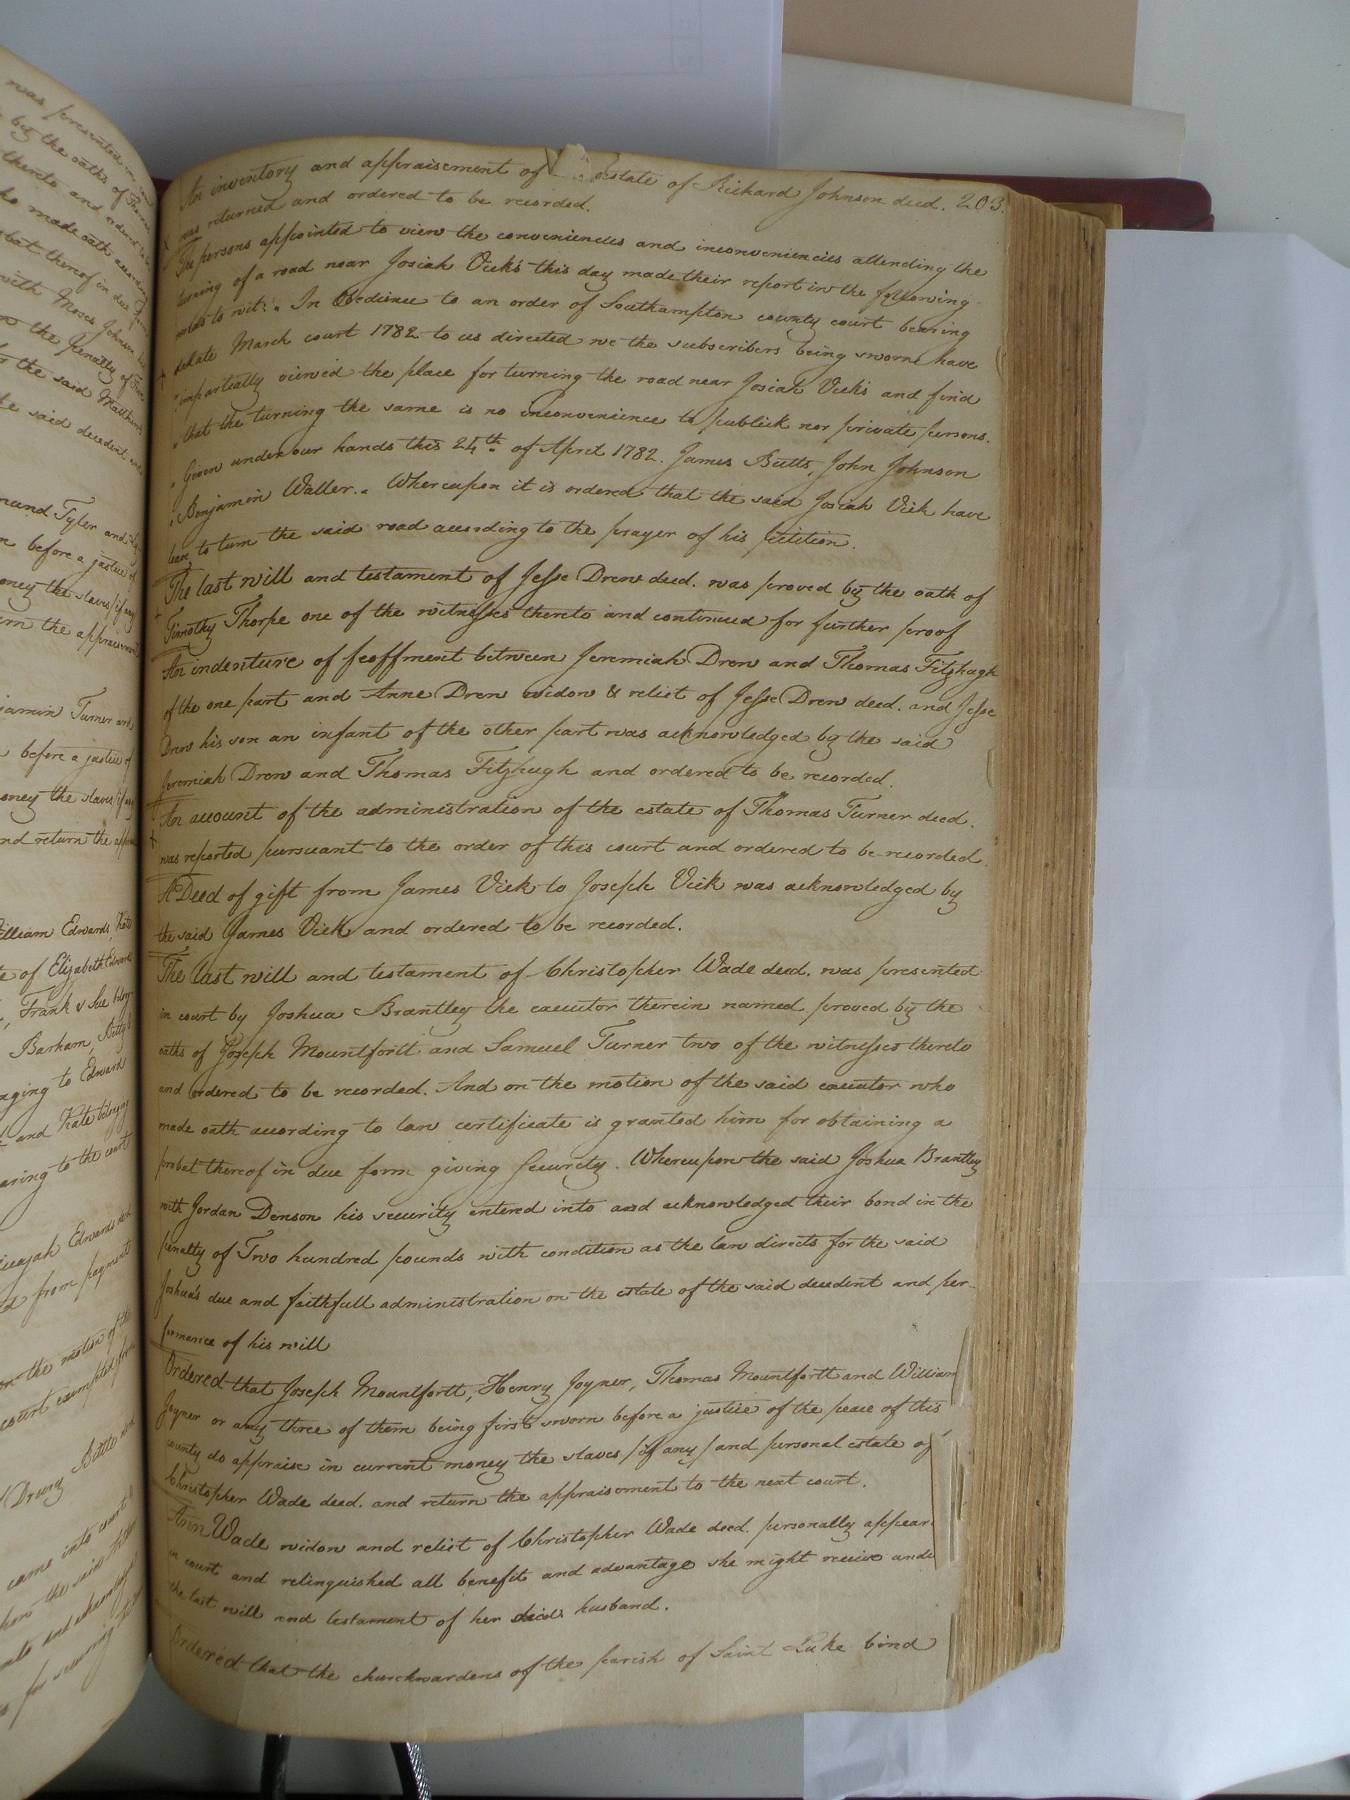 was presented in
by the oaths of Thomas
thereto and ordered to be
who made oath according
probat thereof in due form
with Moses Johnson his
in the penalty of Five
for the said Matthew's
the said decedent and
mund Tyler and
n before a justice of
oney the slaves /if any/
urn the appraisement
jamin Turner and
before a justice of
oney the slaves /if any
nd return the appra
illiam Edwards, Kate
te of Elizabeth Edwards
, Frank & Sue belong
Barham, Betty b
nging to Edward
and Kate belong
aring to the court
icajah Edwards ded
d from payment
on the motion of the
court exempted from
Drury Battle
came into court
the said Arthur
into and acknowledged
for securing the
An inventory and appraisement of estate of Richard Johnson decd. 203.
was returned and ordered to be recorded.
The persons appointed to view the conveniencies and inconveniencies attending the
turning of a road near Josiah Vick's this day made their report in the following
words to wit: " In Obedience to an order of Southampton county court bearing
" date March court 1782 to us directed we the subscribers being sworn have
" impartially viewed the place for turning the road near Josiah Vick's and find
" that the turning the same is no inconvenience to publick nor private persons.
" Given under our hands this 24th of April 1782. James Butts, John Johnson
" Benjamin Waller. " Whereupon it is ordered that the said Josiah Vick have
leave to turn the said road according to the prayer of his petition.
The last will and testament of Jesse Drew decd. was proved by the oath of
Timothy Thorpe one of the witnesses thereto and continued for further proof
An indenture of feoffment between Jeremiah Drew and Thomas Fitzhugh
of the one part and Anne Drew widow & relict of Jesse Drew decd. and Jesse
Drew his son an infant of the other part was acknowledged by the said
Jeremiah Drew and Thomas Fitzhugh and ordered to be recorded.
An account of the administration of the estate of Thomas Turner decd.
was reported pursuant to the order of this court and ordered to be recorded.
A Deed of gift from James Vick to Joseph Vick was acknowledged by
the said James Vick and ordered to be recorded.
The last will and testament of Christopher Wade decd. was presented
in court by Joshua Brantley the executor therein named proved by the
oaths of Joseph Mountfortt and Samuel Turner two of the witnesses thereto
and ordered to be recorded. And on the motion of the said executor who
made oath according to law certificate is granted him for obtaining a
probat thereof in due form giving security. Whereupon the said Joshua Brantley
with Jordan Denson his security entered into and acknowledged their bond in the
penalty of Two hundred pounds with condition as the law directs for the said
Joshua's due and faithfull administration on the estate of the said decedent and per-
formance of his will
Ordered that Joseph Mountfortt, Henry Joyner, Thomas Mountfortt and William
Joyner or any three of them being first sworn before a justice of the peace of this
county do appraise in current money the slaves /if any/ and personal estate of
Christopher Wade decd. and return the appraisement to the next court.
Ann Wade widow and relict of Christopher Wade decd. personally appear
in court and relinquished all benefit and advantage she might receive unde
the last will and testament of her decd husband.
Ordered that the churchwardens of the parish of Saint Luke bind